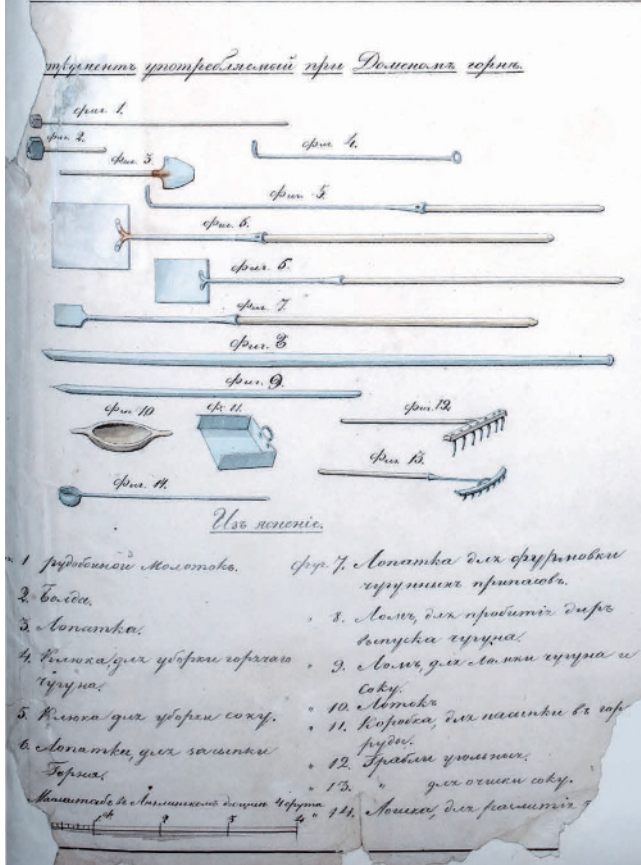 трументъ употребляемый при Доменномъ горнѣ.
фиг. 1.
фиг. 2.
фиг. 3.
фиг. 4.
фиг. 5.
фиг. 6.
фиг. 6.
фиг. 7.
фиг. 8
фиг. 9.
фиг. 10
фг. 11.
фиг. 12
фиг. 13.
фиг. 14.
Изъясненіе.
1 рудобойной Молотокъ.
2. Болда.
3. Лопатка.
4. Клюка для уборки горячаго
чугуна.
5. Клюка для уборки соку.
6. Лопатка, для засыпки
Горна.
Масштабъ Англинскомъ дюймѣ 4 фута
фиг. 7. Лопатка для формовки
чугунныхъ припасовъ.
" 8. Ломъ, для пробитія дыръ
выпуска чугуна.
" 9. Ломъ, для ломки чугуна и
соку.
" 10. Лотокъ
" 11. Коробка, для насыпки въ гор
руды.
" 12. Грабли угольныя.
" 13. " для очиски соку.
" 14. Ложка, для